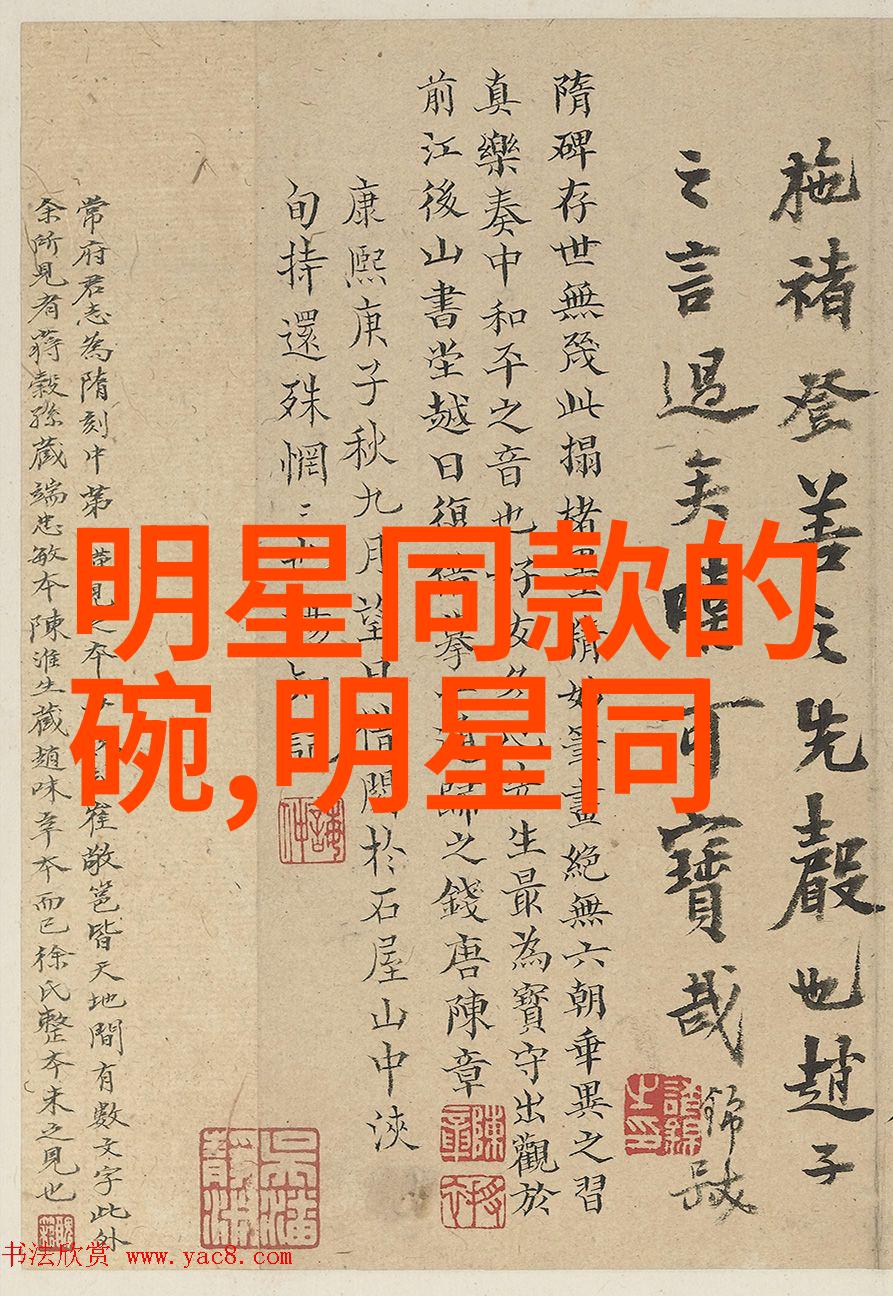 施褚登善之先聲也趙子
之言過矣噫可寶哉
錦
隋碑存世無茂此搨楮墨
筆畫絕無六朝乖異之習
真樂奏中和平之音也好友
生最為寶守出觀於
前江後山書堂越日復借摹一過歸之錢唐陳章
康熙庚子秋九月望
於石屋山中浹
旬持還殊惘
常府君志為隋刻中第
崔敬邕皆天地間有數文字此外
余所見有蔣穀孫藏端忠敏本陳淮生藏趙味辛本而已徐氏整本未之見也
明星同款的
碗,明星同
书法欣赏 www.yac8.com